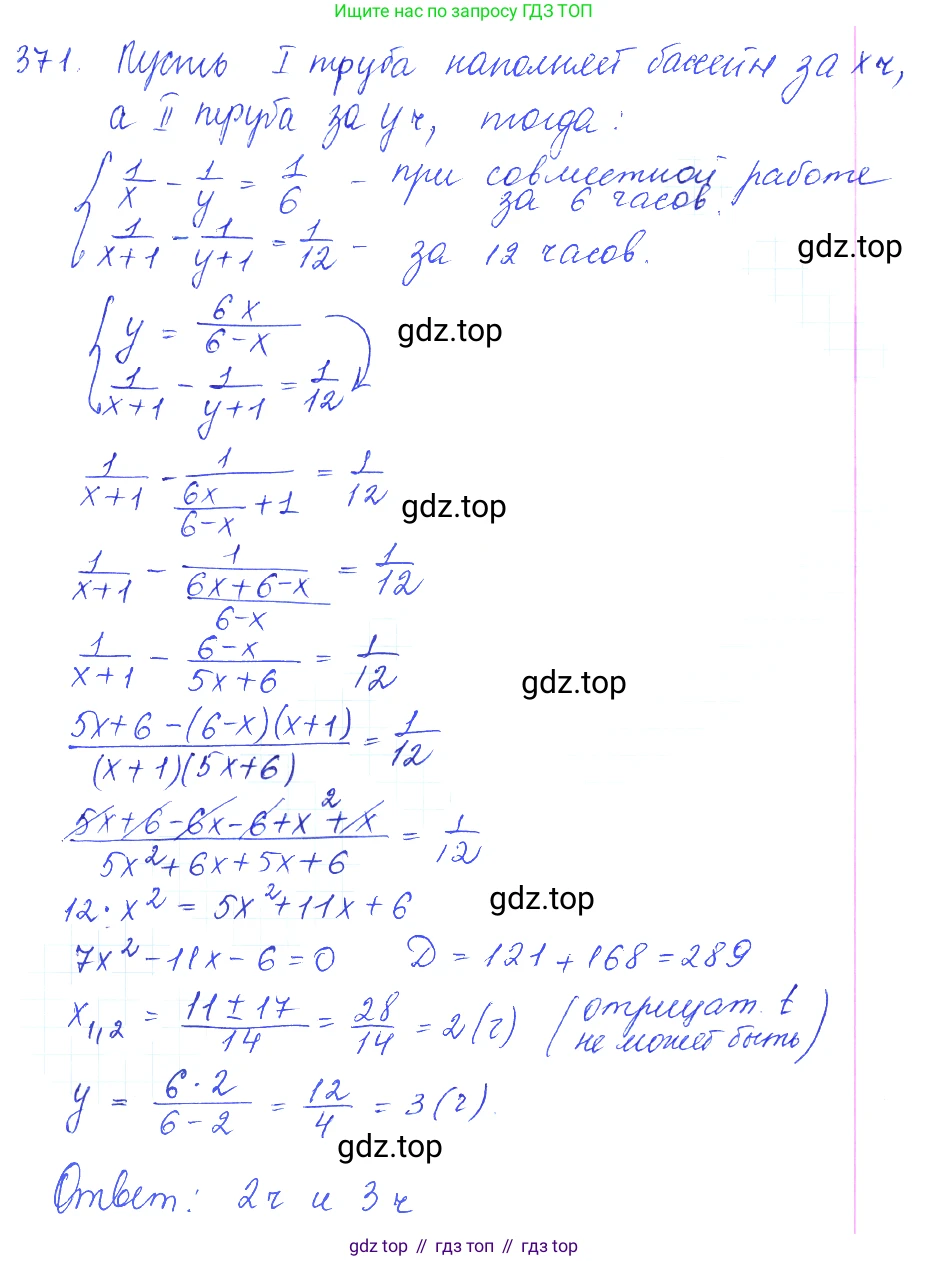 Ищите нас по запросу ГДЗ ТОП
371. Пусть I труба наполняет бассейн за x ч,
а II труба за y ч, тогда:
{ 1/x - 1/y = 1/6 - при совместной работе
за 6 часов.
1/(x+1) - 1/(y+1) = 1/12 - за 12 часов.
gdz.top
{ y = 6x/(6-x)
gdz.top
1/(x+1) - 1/(y+1) = 1/12
1/(x+1) - 1/(6x/(6-x) + 1) = 1/12
gdz.top
1/(x+1) - 1/((6x+6-x)/(6-x)) = 1/12
1/(x+1) - (6-x)/(5x+6) = 1/12
gdz.top
(5x+6-(6-x)(x+1))/((x+1)(5x+6)) = 1/12
(5x+6-6x-6+x²+x)/(5x²+6x+5x+6) = 1/12
12·x² = 5x²+11x+6
gdz.top
7x²-11x-6=0 D = 121+168=289
x₁,₂ = (11±17)/14 = 28/14 = 2(ч) (отрицат. t
не может быть)
y = (6·2)/(6-2) = 12/4 = 3(ч).
gdz.top
Ответ: 2ч и 3ч
gdz top // гдз топ // gdz top